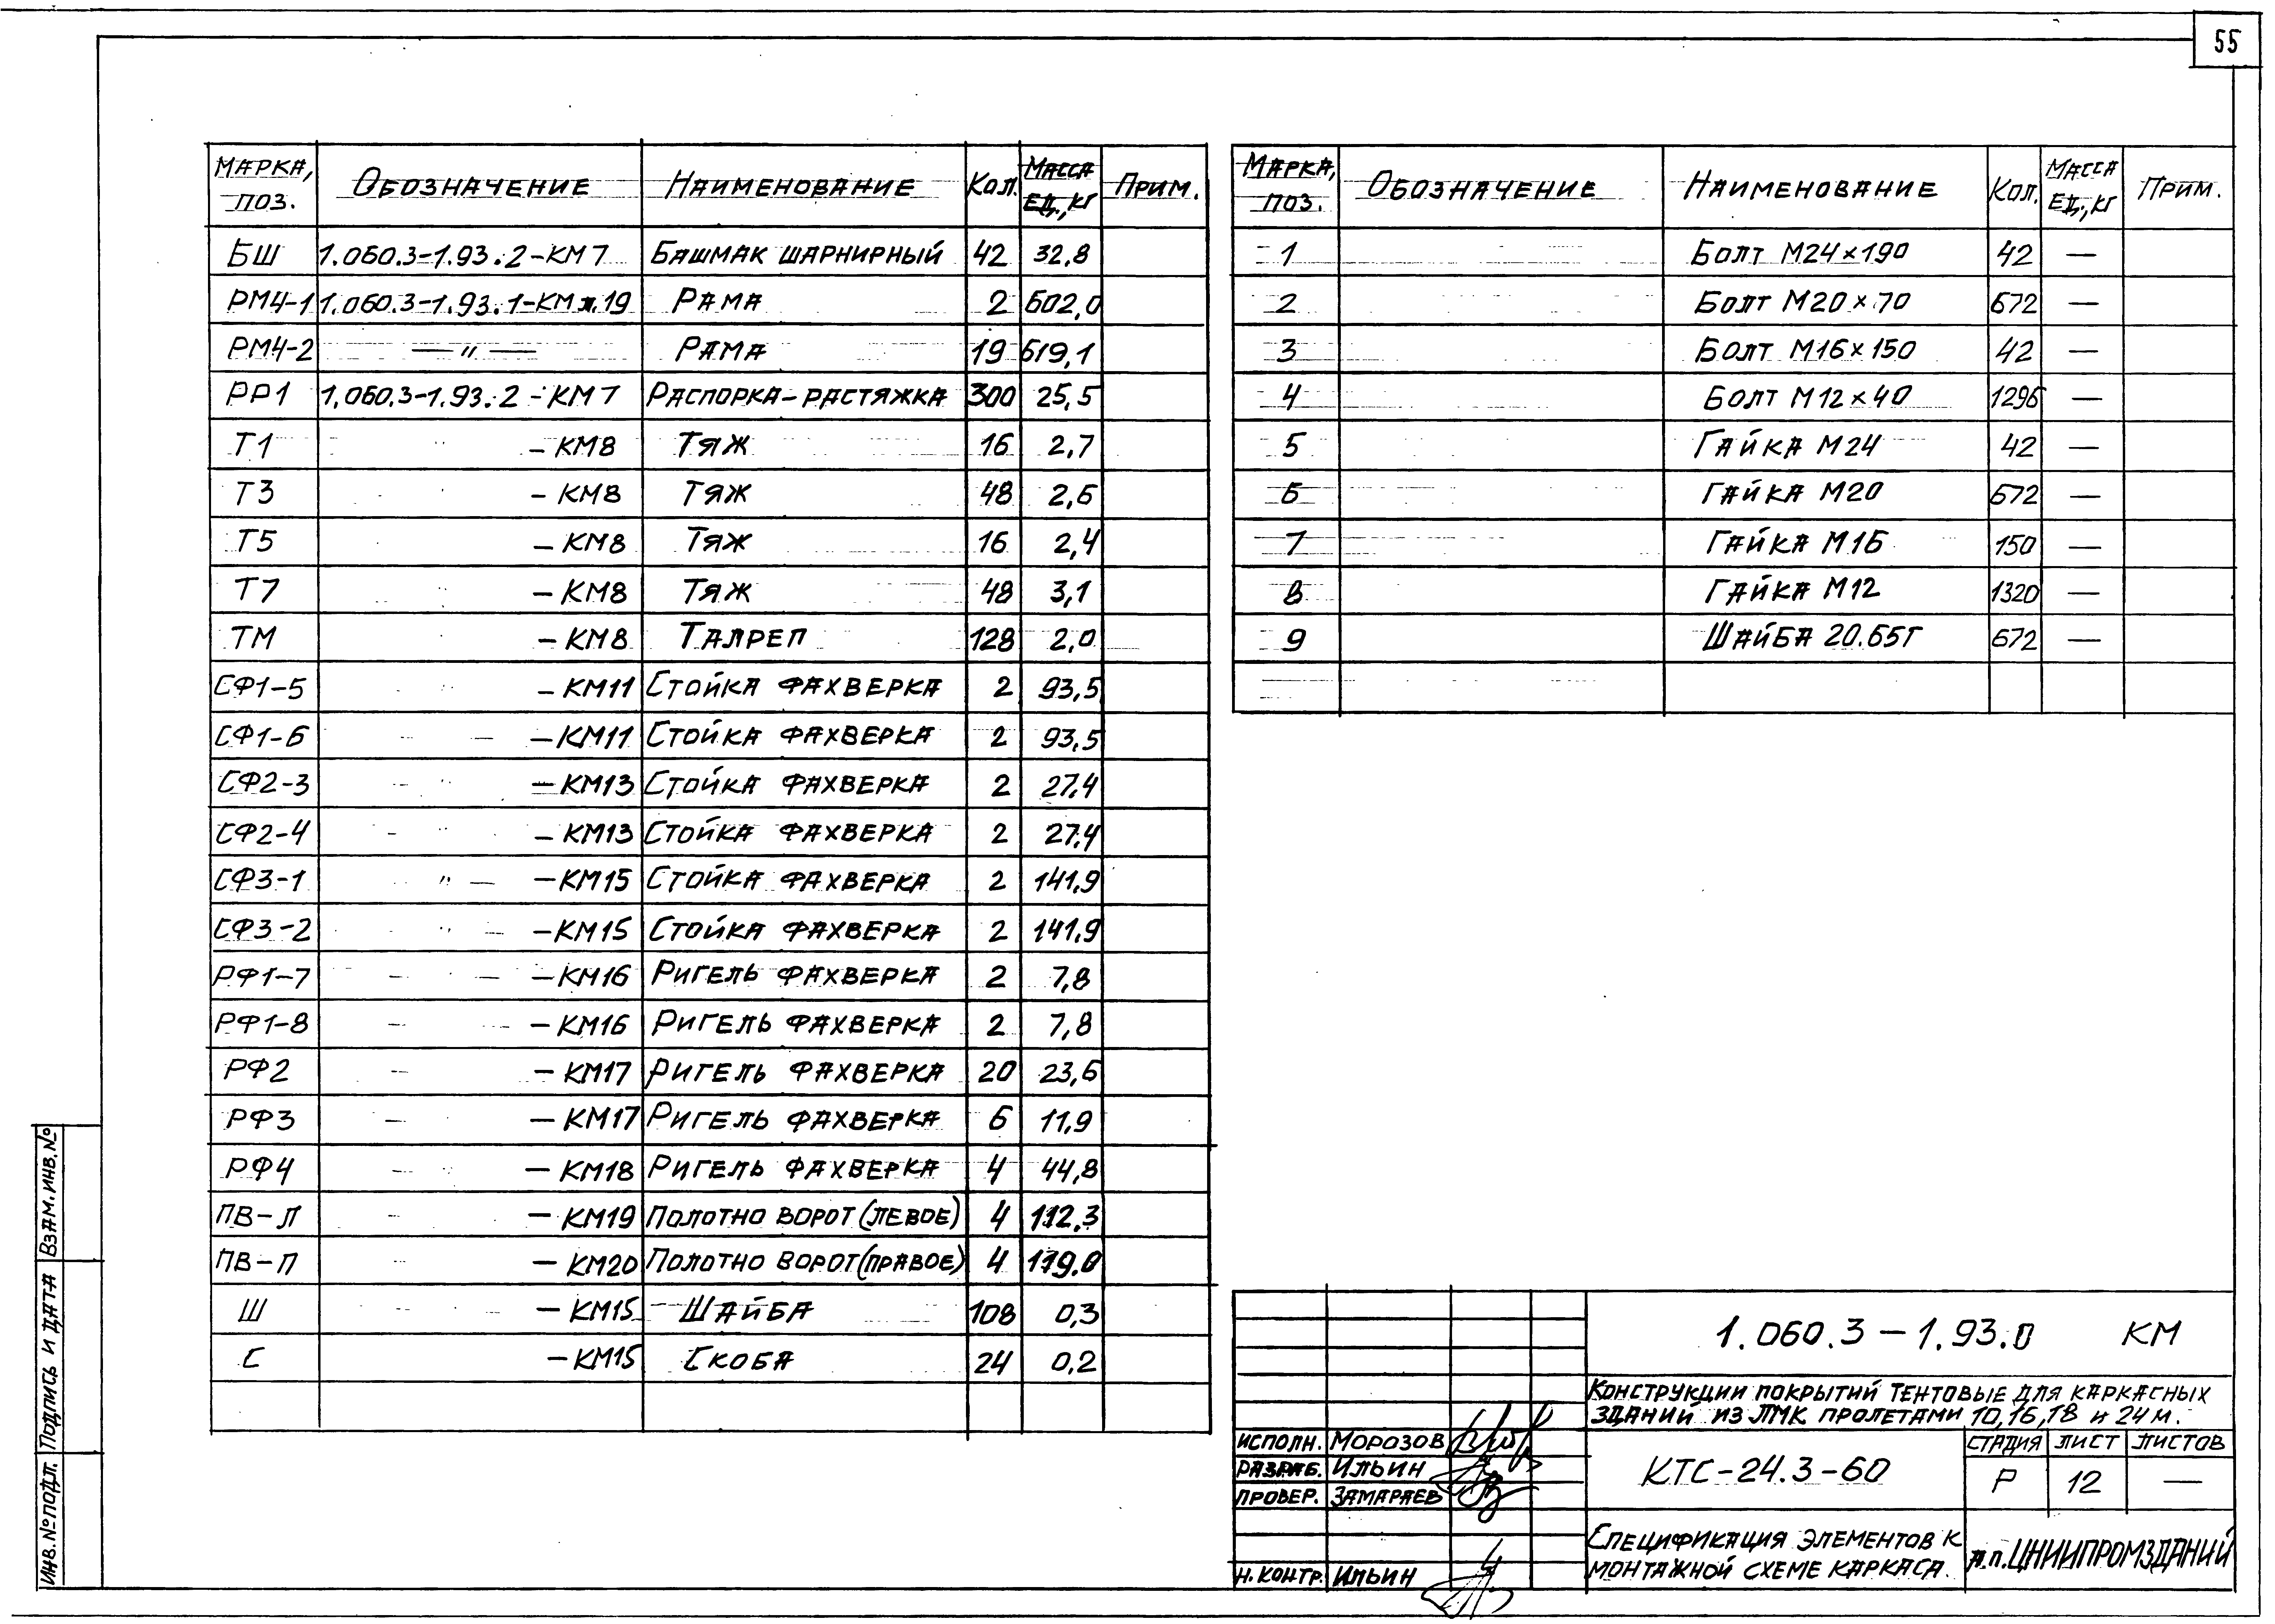 55
МАРКА, ПОЗ. ОБОЗНАЧЕНИЕ НАИМЕНОВАНИЕ КОЛ. МАССА ЕД., КГ ПРИМ.
БШ 1.060.3-1.93.2-КМ7 БАШМАК ШАРНИРНЫЙ 42 32,8
РМ4-1 1.060.3-1.93.1-КМл.19 РАМА 2 602,0
РМ4-2 —"— РАМА 19 619,1
РР1 1.060.3-1.93.2-КМ7 РАСПОРКА-РАСТЯЖКА 300 25,5
Т1 -КМ8 ТЯЖ 16 2,7
Т3 -КМ8 ТЯЖ 48 2,6
Т5 -КМ8 ТЯЖ 16 2,4
Т7 -КМ8 ТЯЖ 48 3,1
ТМ -КМ8 ТАЛРЕП 128 2,0
СФ1-5 -КМ11 СТОЙКА ФАХВЕРКА 2 93,5
СФ1-6 -КМ11 СТОЙКА ФАХВЕРКА 2 93,5
СФ2-3 -КМ13 СТОЙКА ФАХВЕРКА 2 27,4
СФ2-4 -КМ13 СТОЙКА ФАХВЕРКА 2 27,4
СФ3-1 " — -КМ15 СТОЙКА ФАХВЕРКА 2 141,9
СФ3-2 -КМ15 СТОЙКА ФАХВЕРКА 2 141,9
РФ1-7 -КМ16 РИГЕЛЬ ФАХВЕРКА 2 7,8
РФ1-8 -КМ16 РИГЕЛЬ ФАХВЕРКА 2 7,8
РФ2 -КМ17 РИГЕЛЬ ФАХВЕРКА 20 23,6
РФ3 -КМ17 РИГЕЛЬ ФАХВЕРКА 6 11,9
РФ4 -КМ18 РИГЕЛЬ ФАХВЕРКА 4 44,8
ПВ-Л -КМ19 ПОЛОТНО ВОРОТ (ЛЕВОЕ) 4 112,3
ПВ-П -КМ20 ПОЛОТНО ВОРОТ (ПРАВОЕ) 4 119.0
Ш -КМ15 ШАЙБА 108 0,3
С -КМ15 СКОБА 24 0,2
МАРКА, ПОЗ. ОБОЗНАЧЕНИЕ НАИМЕНОВАНИЕ КОЛ. МАССА ЕД., КГ ПРИМ.
1 БОЛТ М24×190 42 —
2 БОЛТ М20×70 672 —
3 БОЛТ М16×150 42 —
4 БОЛТ М12×40 1296 —
5 ГАЙКА М24 42 —
6 ГАЙКА М20 672 —
7 ГАЙКА М16 150 —
8 ГАЙКА М12 1320 —
9 ШАЙБА 20.65Г 672 —
1.060.3-1.93.0 КМ
КОНСТРУКЦИИ ПОКРЫТИЙ ТЕНТОВЫЕ ДЛЯ КАРКАСНЫХ
ЗДАНИЙ ИЗ ЛМК ПРОЛЕТАМИ 10,16,18 И 24 М.
ИСПОЛН. МОРОЗОВ
РАЗРАБ. ИЛЬИН
ПРОВЕР. ЗАМАРАЕВ
Н.КОНТР. ИЛЬИН
КТС-24.3-60
СТАДИЯ ЛИСТ ЛИСТОВ
Р 12 —
СПЕЦИФИКАЦИЯ ЭЛЕМЕНТОВ К
МОНТАЖНОЙ СХЕМЕ КАРКАСА.
А.П. ЦНИИПРОМЗДАНИЙ
ИНВ.№ПОДЛ. ПОДПИСЬ И ДАТА ВЗАМ.ИНВ.№